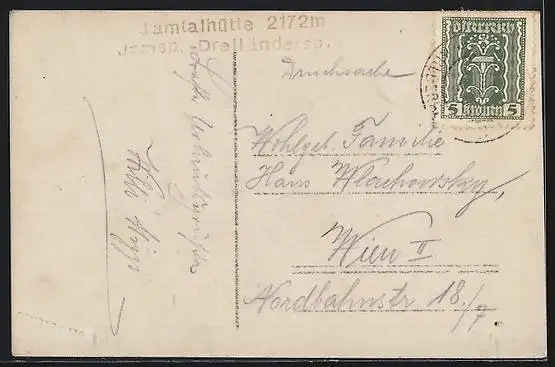 Jamtalhütte 2172m
Jamsp. Dreiländersp.
Drucksache
Österreich
5 Kronen 5
Wohlgeb. Familie
Hans Wlachowsky,
Wien II
Nordbahnstr 18./7
Urlaubsgrüsse